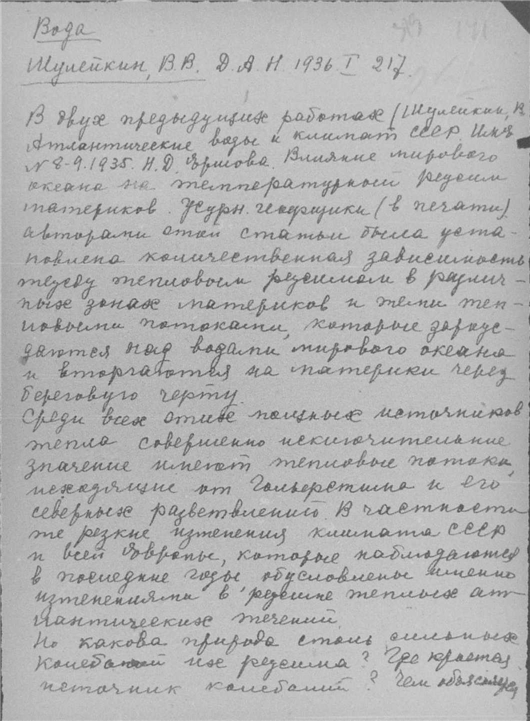 Вода
171
Шулейкин, В.В. Д.А.Н. 1936 I 217.
В двух предыдущих работах (Шулейкин, В
Атлантические воды и климат СССР
N 8-9. 1935. Н.Д. Ершова. Влияние мирового
океана на температурный режим
материков. Журн. Геофизики (в печати)
авторами этой статьи была уста-
новлена количественная зависимость
между тепловым режимом в различ-
ных зонах материков и теми теп-
ловыми потоками, которые зарож-
даются над водами мирового океана
и вторгаются на материки через
береговую черту.
Среди всех этих мощных источников
тепла совершенно исключительное
значение имеют тепловые потоки,
исходящие от Гольфстима и его
северных разветвлений. В частности
те резкие изменения климата СССР
и всей Европы, которые наблюдаются
в последние годы, обусловлены именно
изменениями в режиме теплых ат-
лантических течений.
Но какова природа столь сильных
колебаний их режима? Где кроется
источник колебаний? Чем